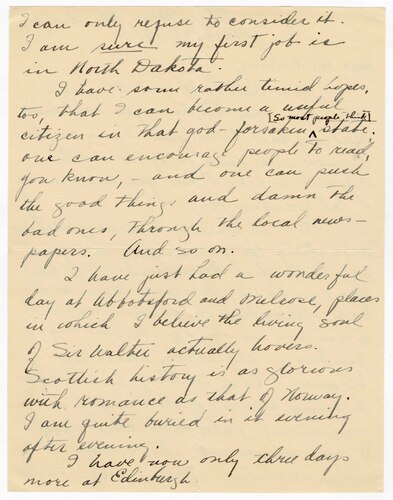 I can only refuse to consider it.
I am sure my first job is
in North Dakota.
I have some rather timid hopes,
too, that I can become a useful
[So most people think]
citizen in that god-forsaken ^ state.
one can encourage people to read,
you know, - and one can push
the good things and damn the
bad ones, through the local news-
papers. And so on.
I have just had a wonderful
day at Abbotsford and Melrose, places
in which I believe the living soul
of Sir Walter actually hovers.
Scottish history is as glorious
with romance as that of Norway.
I am quite buried in it evening
after evening.
I have now only three days
more at Edinburgh.